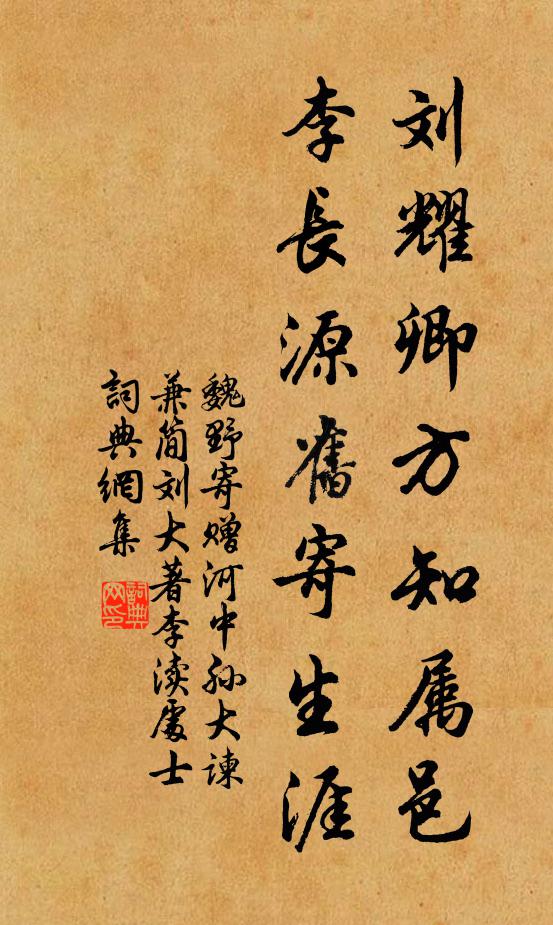 刘耀卿方知属邑
李長源舊寄生涯
魏野寄赠河中孙大諫
兼简刘大著李渎處士
詞典網集
詞典网印